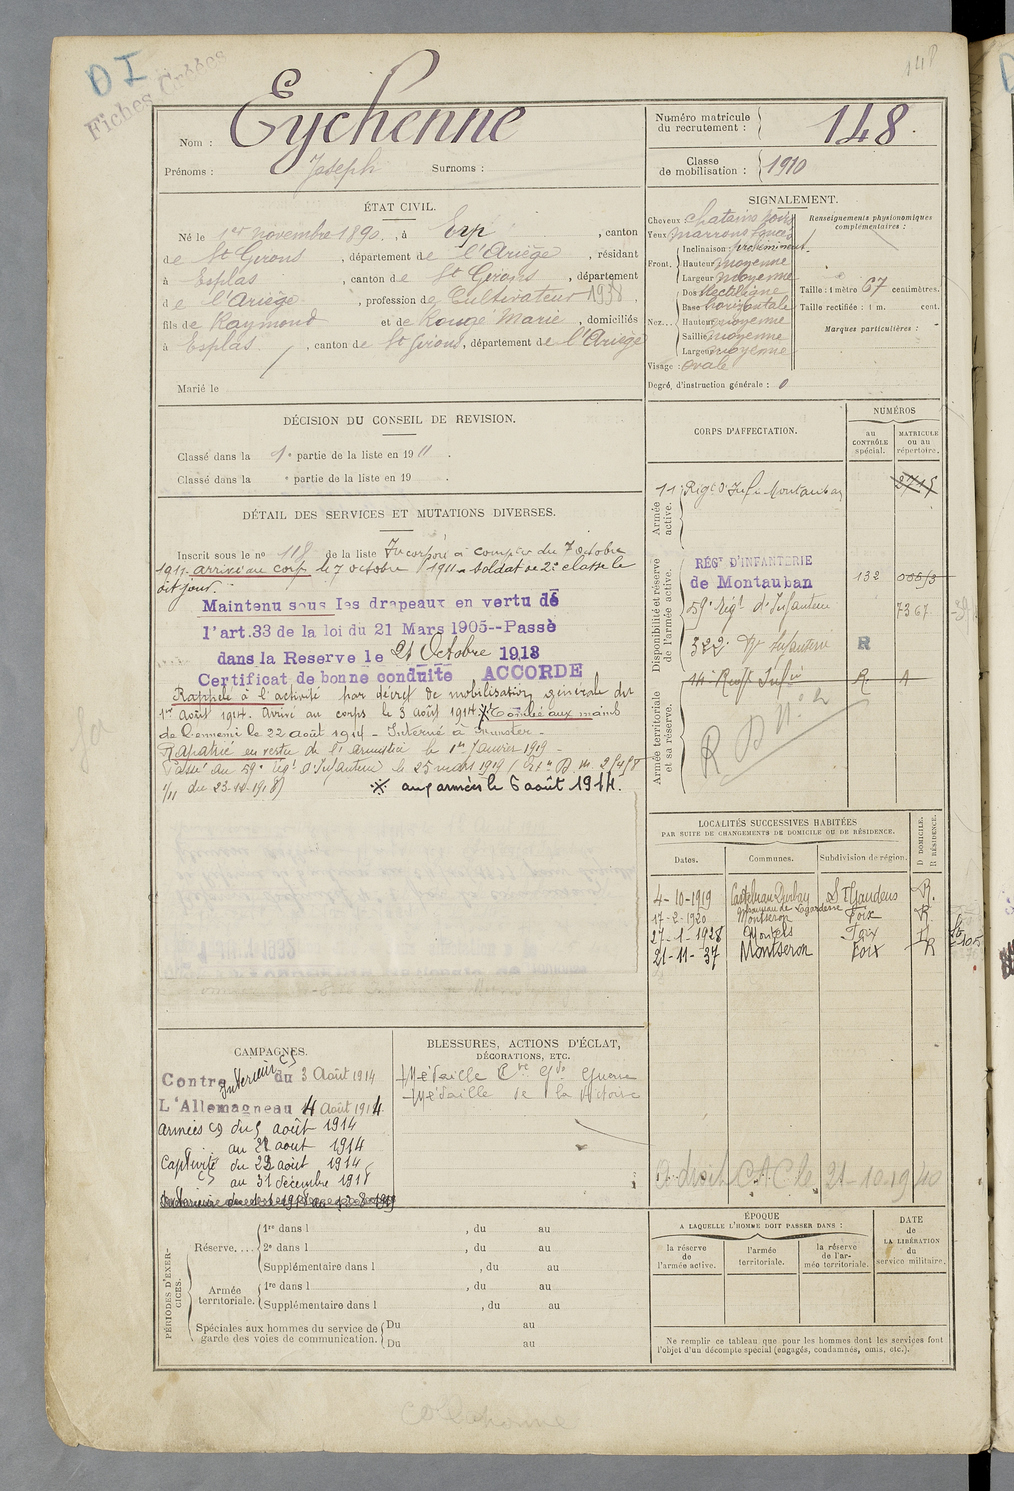 148
D I
Fiches Créées
Nom : Eychenne
Prénoms : Joseph Surnoms :
Numéro matricule du recrutement : 148.
Classe de mobilisation : 1910
ÉTAT CIVIL.
Né le 1er novembre 1890, à Erp, canton
de St Girons, département de l'Ariège, résidant
à Esplas, canton de St Girons, département
de l'Ariège, profession de Cultivateur 1938,
fils de Raymond et de Rougé Marie, domiciliés
à Esplas, canton de St Girons, département de l'Ariège
Marié le
SIGNALEMENT.
Cheveux : chatains noirs
Yeux marrons foncés
Front. Inclinaison : proéminent
Hauteur moyenne
Largeur moyenne
Nez... Dos Rectiligne
Base horizontale
Hauteur moyenne
Saillie moyenne
Largeur moyenne
Visage : ovale
Renseignements physionomiques complémentaires :
Taille : 1 mètre 67 centimètres.
Taille rectifiée : 1 m. cent.
Marques particulières :
Degré d'instruction générale : 0
DÉCISION DU CONSEIL DE REVISION.
Classé dans la 1e partie de la liste en 1911.
Classé dans la e partie de la liste en 19 .
DÉTAIL DES SERVICES ET MUTATIONS DIVERSES.
Inscrit sous le no 118 de la liste Incorporé à compter du 7 octobre
1911. arrivé au corps le 7 octobre 1911. Soldat de 2e classe le
dit jour.
Maintenu sous les drapeaux en vertu de
l'art.33 de la loi du 21 Mars 1905--Passé
dans la Reserve le 21 Octobre 1913
Certificat de bonne conduite ACCORDE
Rappelé à l'activité par décret de mobilisation générale du
1er août 1914. Arrivé au corps le 3 août 1914. Tombé aux mains
de l'ennemi le 22 août 1914 - Interné à Munster -
Rapatrié en vertu de l'armistice le 1er Janvier 1919 -
Passé au 59e Régt d'Infanterie le 25 mars 1919
1/11 du 23-12-1918)
※ aux armées le 6 août 1914.
CORPS D'AFFECTATION.
NUMÉROS
au CONTRÔLE spécial.
MATRICULE ou au répertoire.
Armée active.
11e Régt d'Infie Montauban
Disponibilité et réserve de l'armée active.
RÉGt D'INFANTERIE
de Montauban 132
59e Régt d'Infanterie 7367
322e Rt Infanterie R
Armée territoriale et sa réserve.
R D No 2
LOCALITÉS SUCCESSIVES HABITÉES
PAR SUITE DE CHANGEMENTS DE DOMICILE OU DE RÉSIDENCE.
Dates. Communes. Subdivision de région. D DOMICILE. R RÉSIDENCE.
4-10-1919 Castelnau Durban St Gaudens R.
17-2-1920 Montseron Foix R
27-1-1928 Montels Foix R
21-11-37 Montseron Foix R
CAMPAGNES.
Contre Intérieur CS du 3 Août 1914
L'Allemagne au 4 Août 1914.
Armées CS du 5 août 1914
au 22 aout 1914
Captivité du 22 août 1914
CS au 31 décembre 1918
BLESSURES, ACTIONS D'ÉCLAT,
DÉCORATIONS, ETC.
Médaille Cve Gde Guerre
Médaille de la Victoire
a droit C A C le 21-10-1940
PÉRIODES D'EXERCICES.
Réserve.... 1re dans l , du au
2e dans l , du au
Supplémentaire dans l , du au
Armée territoriale. 1re dans l , du au
Supplémentaire dans l , du au
Spéciales aux hommes du service de garde des voies de communication. Du au
Du au
ÉPOQUE
A LAQUELLE L'HOMME DOIT PASSER DANS :
la réserve de l'armée active.
l'armée territoriale.
la réserve de l'armée territoriale.
DATE de LA LIBÉRATION du service militaire.
Ne remplir ce tableau que pour les hommes dont les services font
l'objet d'un décompte spécial (engagés, condamnés, omis, etc.).